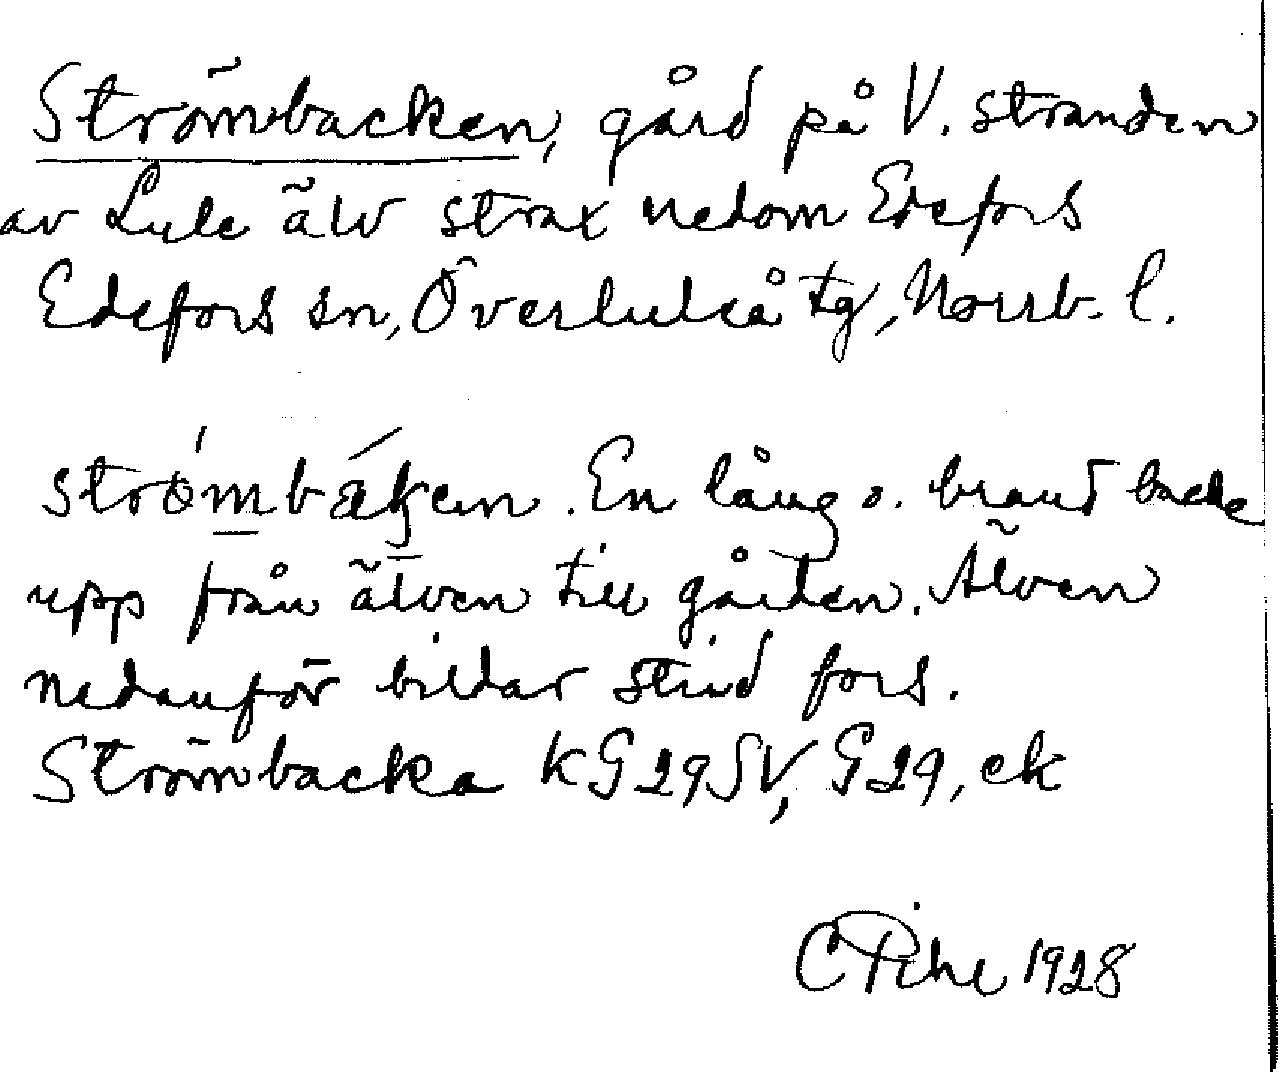 Strömbacken, gård på V. stranden
av Lule älv strax nedom Edefors
Edefors sn, Överluleå tg, Norrb. l.
strö́mbák̠en. En lång o. brant backe
upp från älven till gården. Älven
nedanför bildar strid fors.
Strömbacka KG29SV, G29, ek
C Pihl 1928